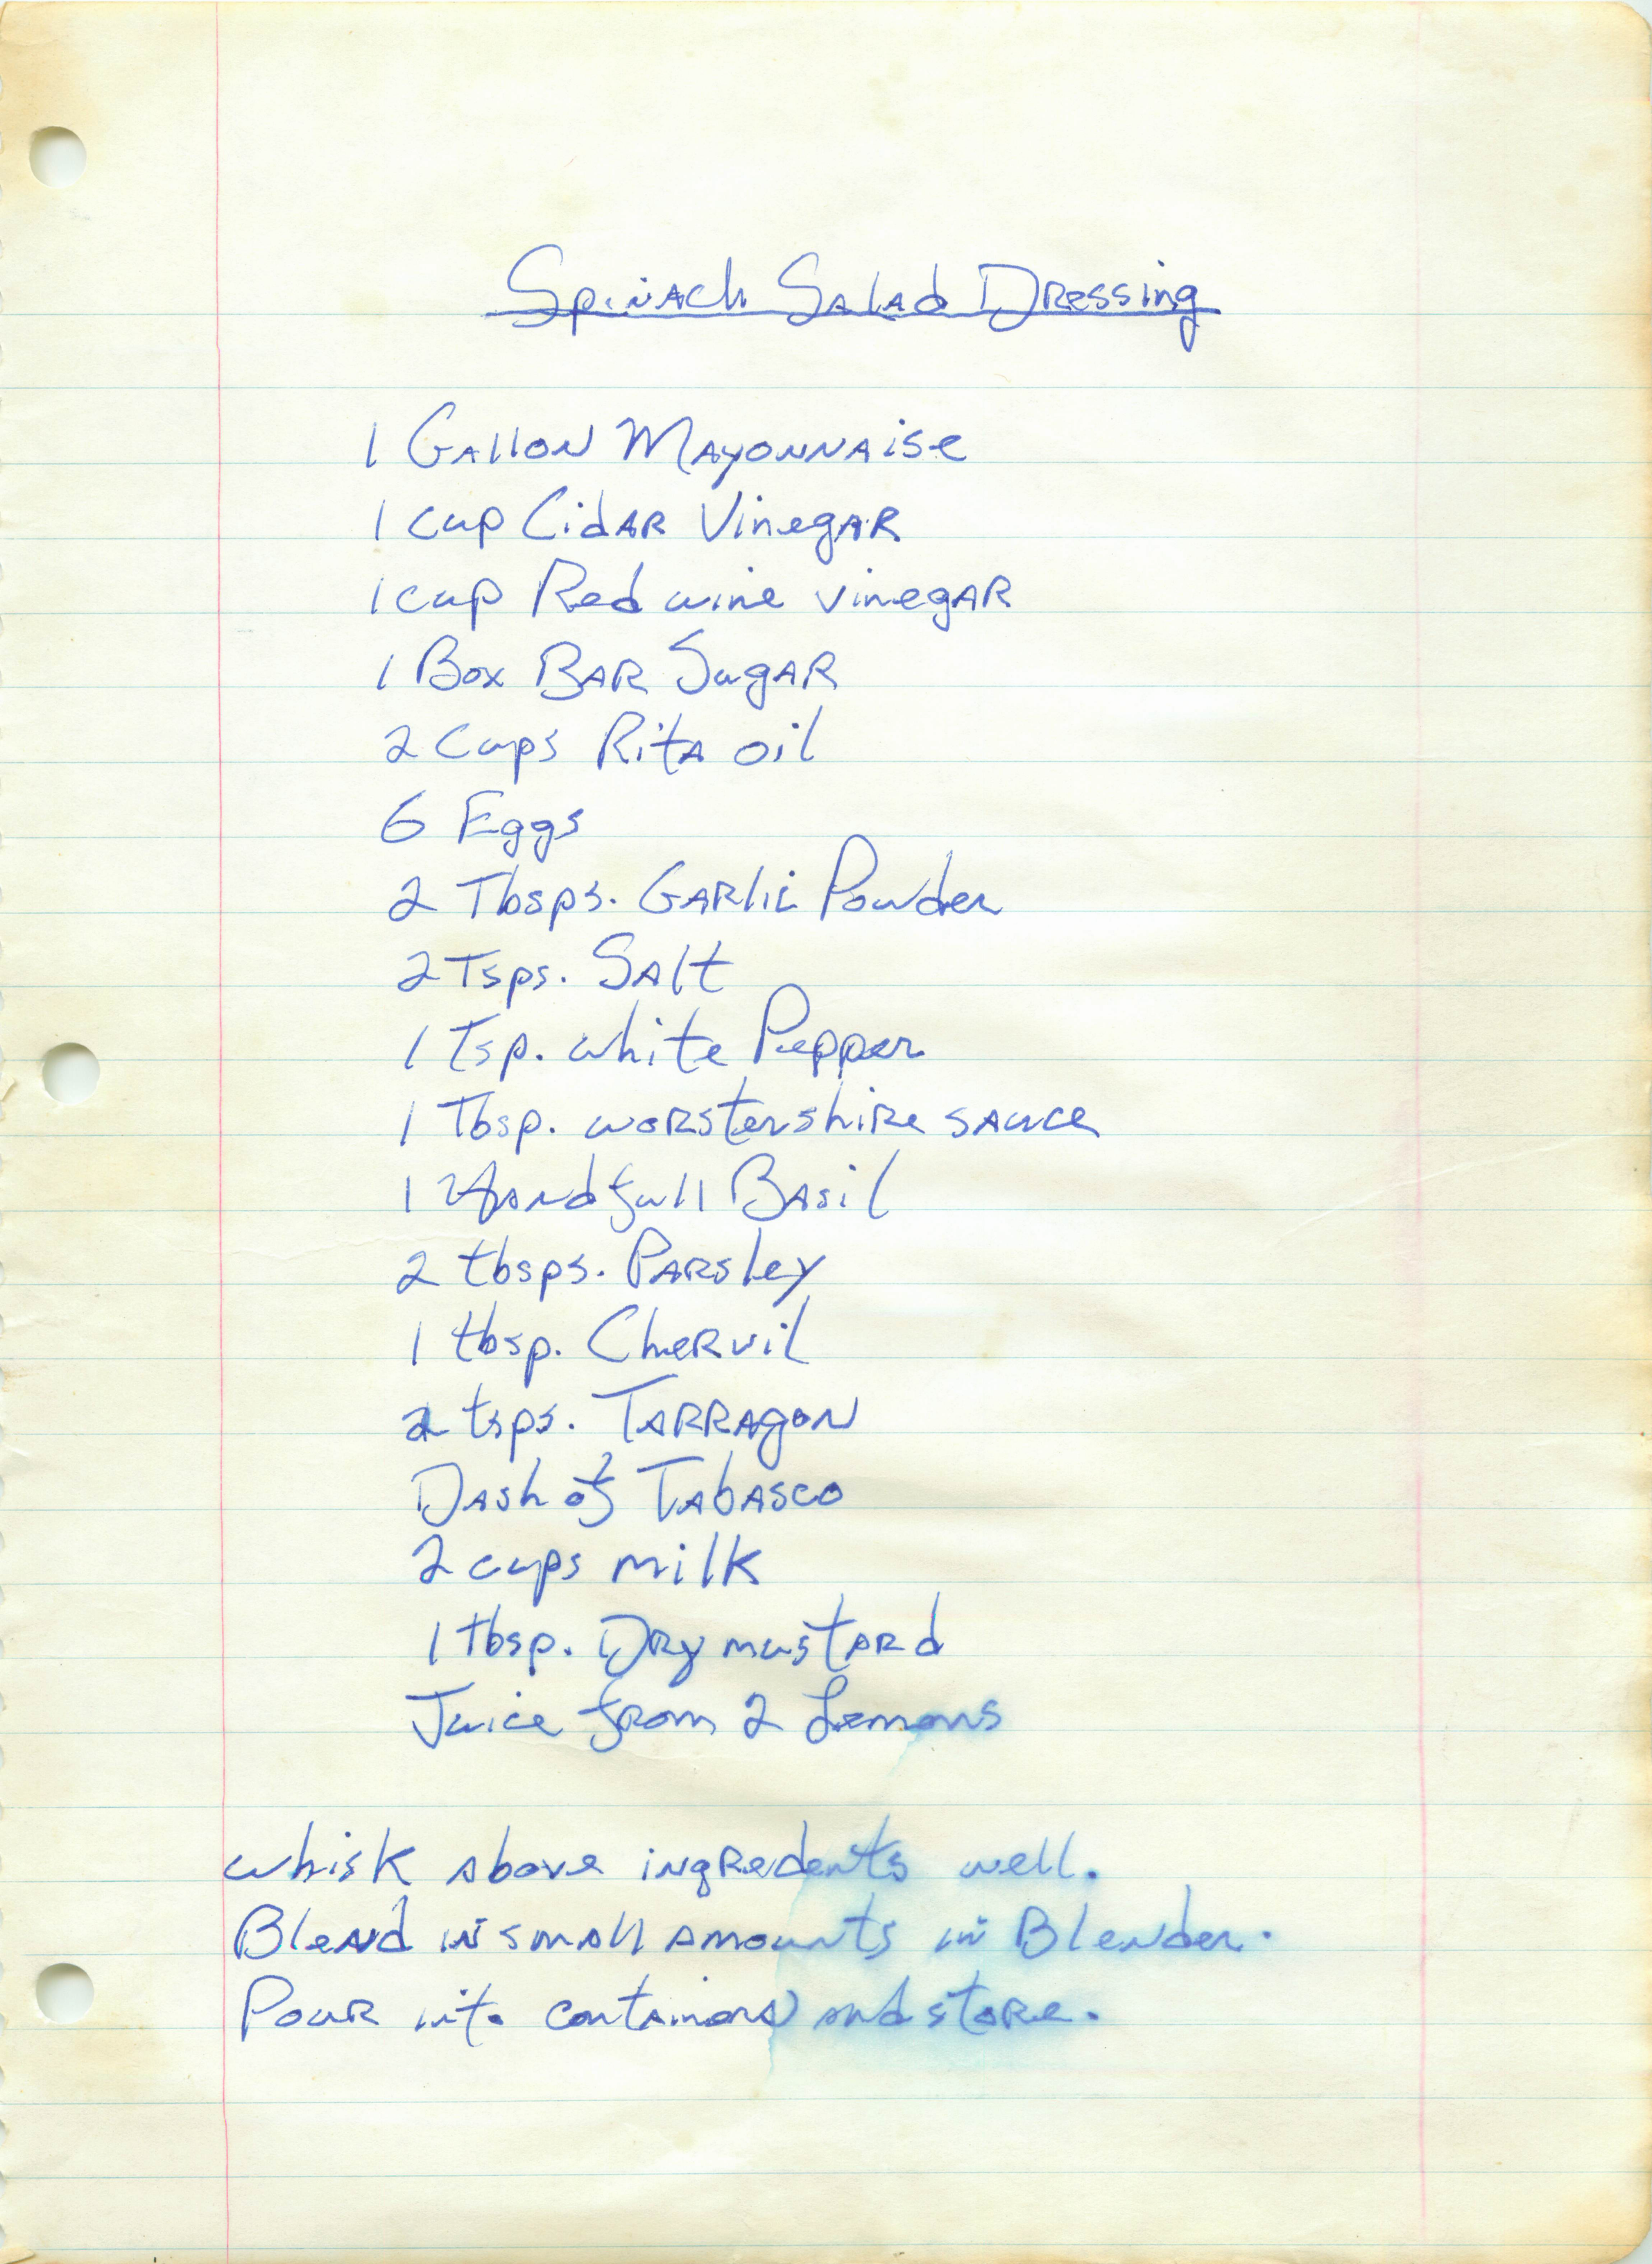 Spinach Salad Dressing
1 Gallon Mayonnaise
1 cup Cidar Vinegar
1 cup Red wine vinegar
1 Box Bar Sugar
2 Cups Rita oil
6 Eggs
2 Tbsps. Garlic Powder
2 Tsps. Salt
1 Tsp. white Pepper
1 Tbsp. worstershire sauce
1 Handfull Basil
2 tbsps. Parsley
1 tbsp. Chervil
2 tsps. Tarragon
Dash of Tabasco
2 cups milk
1 tbsp. Dry mustard
Juice from 2 Lemons
whisk above ingredents well.
Blend in small amounts in Blender.
Pour into containers and store.